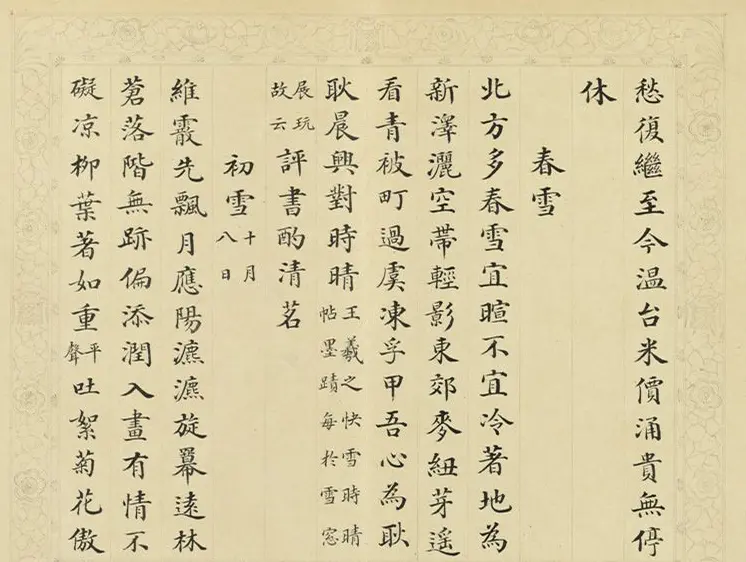 愁復繼至今温台米價涌貴無停
休
春雪
北方多春雪宜暄不宜冷著地為
新澤灑空帶輕影東郊麥紐芽遥
看青被町過虞凍孚甲吾心為耿
耿晨興對時晴王羲之快雪時晴帖墨蹟每於雪窓
展玩故云評書酌清茗
初雪十月八日
維霰先飄月應陽瀌瀌旋羃遠林
蒼落階無跡偏添潤入畫有情不
礙凉柳葉著如重平聲吐絮菊花傲